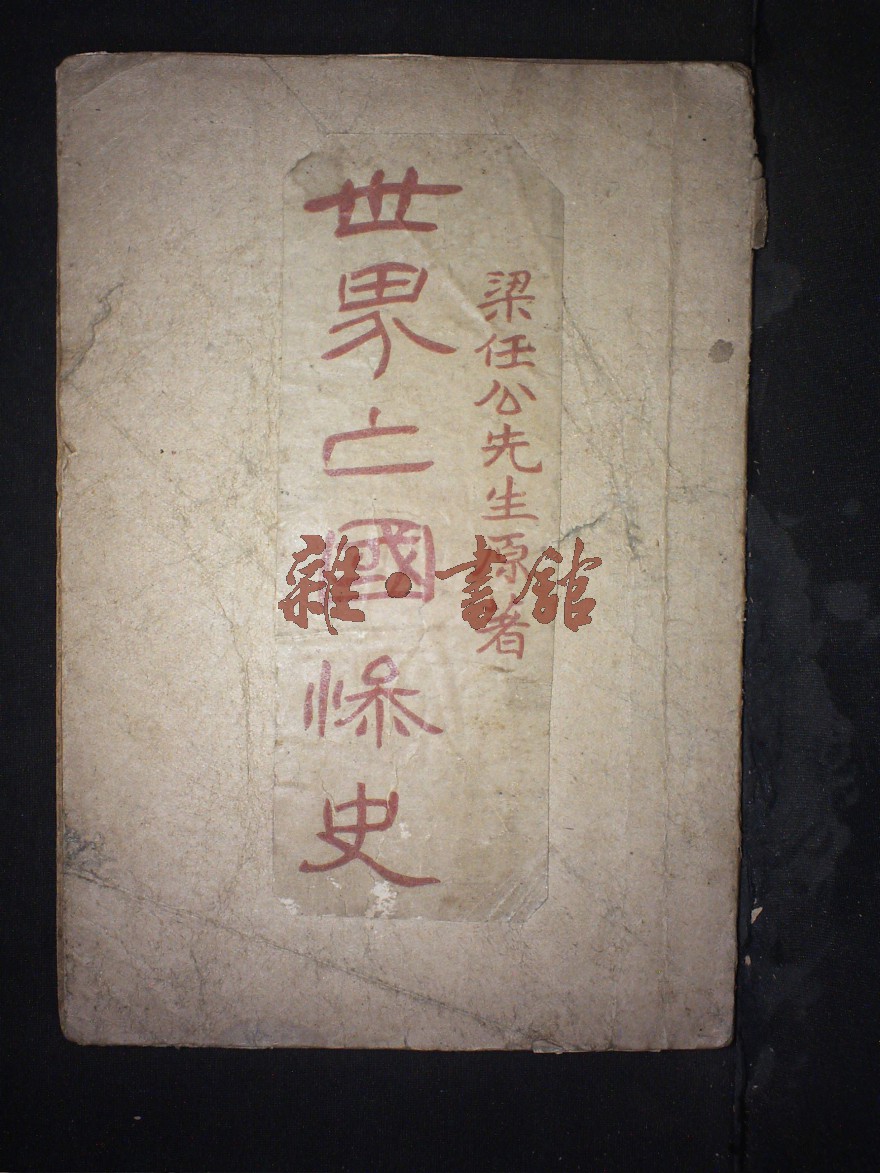 梁任公先生原著
世界亡國慘史
雜·書館